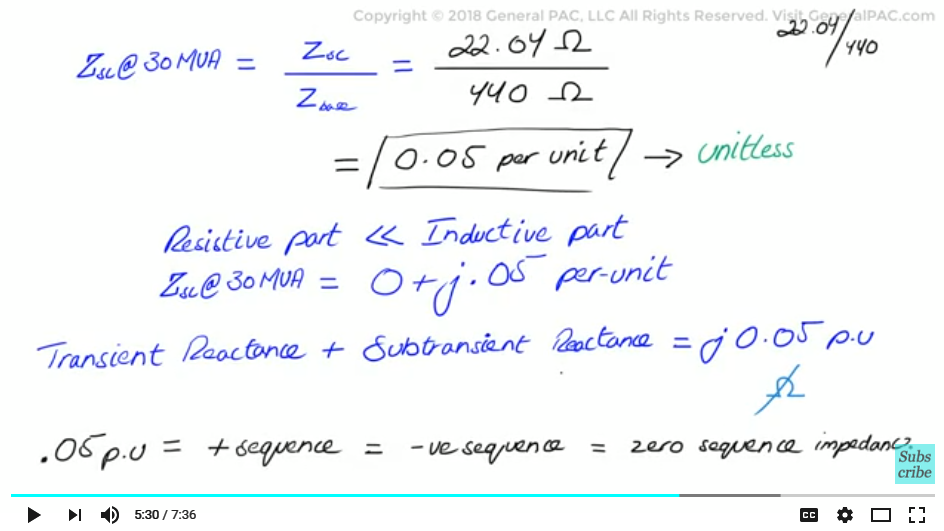 Copyright © 2018 General PAC, LLC All Rights Reserved. Visit GeneralPAC.com
22.04/440
Zsc@30MVA = Zsc / Zbase = 22.04 Ω / 440 Ω
= 0.05 per unit → unitless
Resistive part << Inductive part
Zsc@30MVA = 0+j.05 per-unit
Transient Reactance + Subtransient Reactance = j0.05 p.u
Ω
.05 p.u = + sequence = -ve sequence = zero sequence impedance
Subs
cribe
5:30 / 7:36
CC